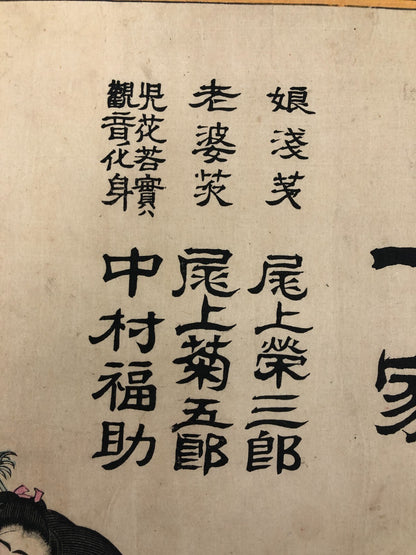 一家
娘浅茅
尾上榮三郎
老婆茨
尾上菊五郎
児花若實ハ
觀音ノ化身
中村福助